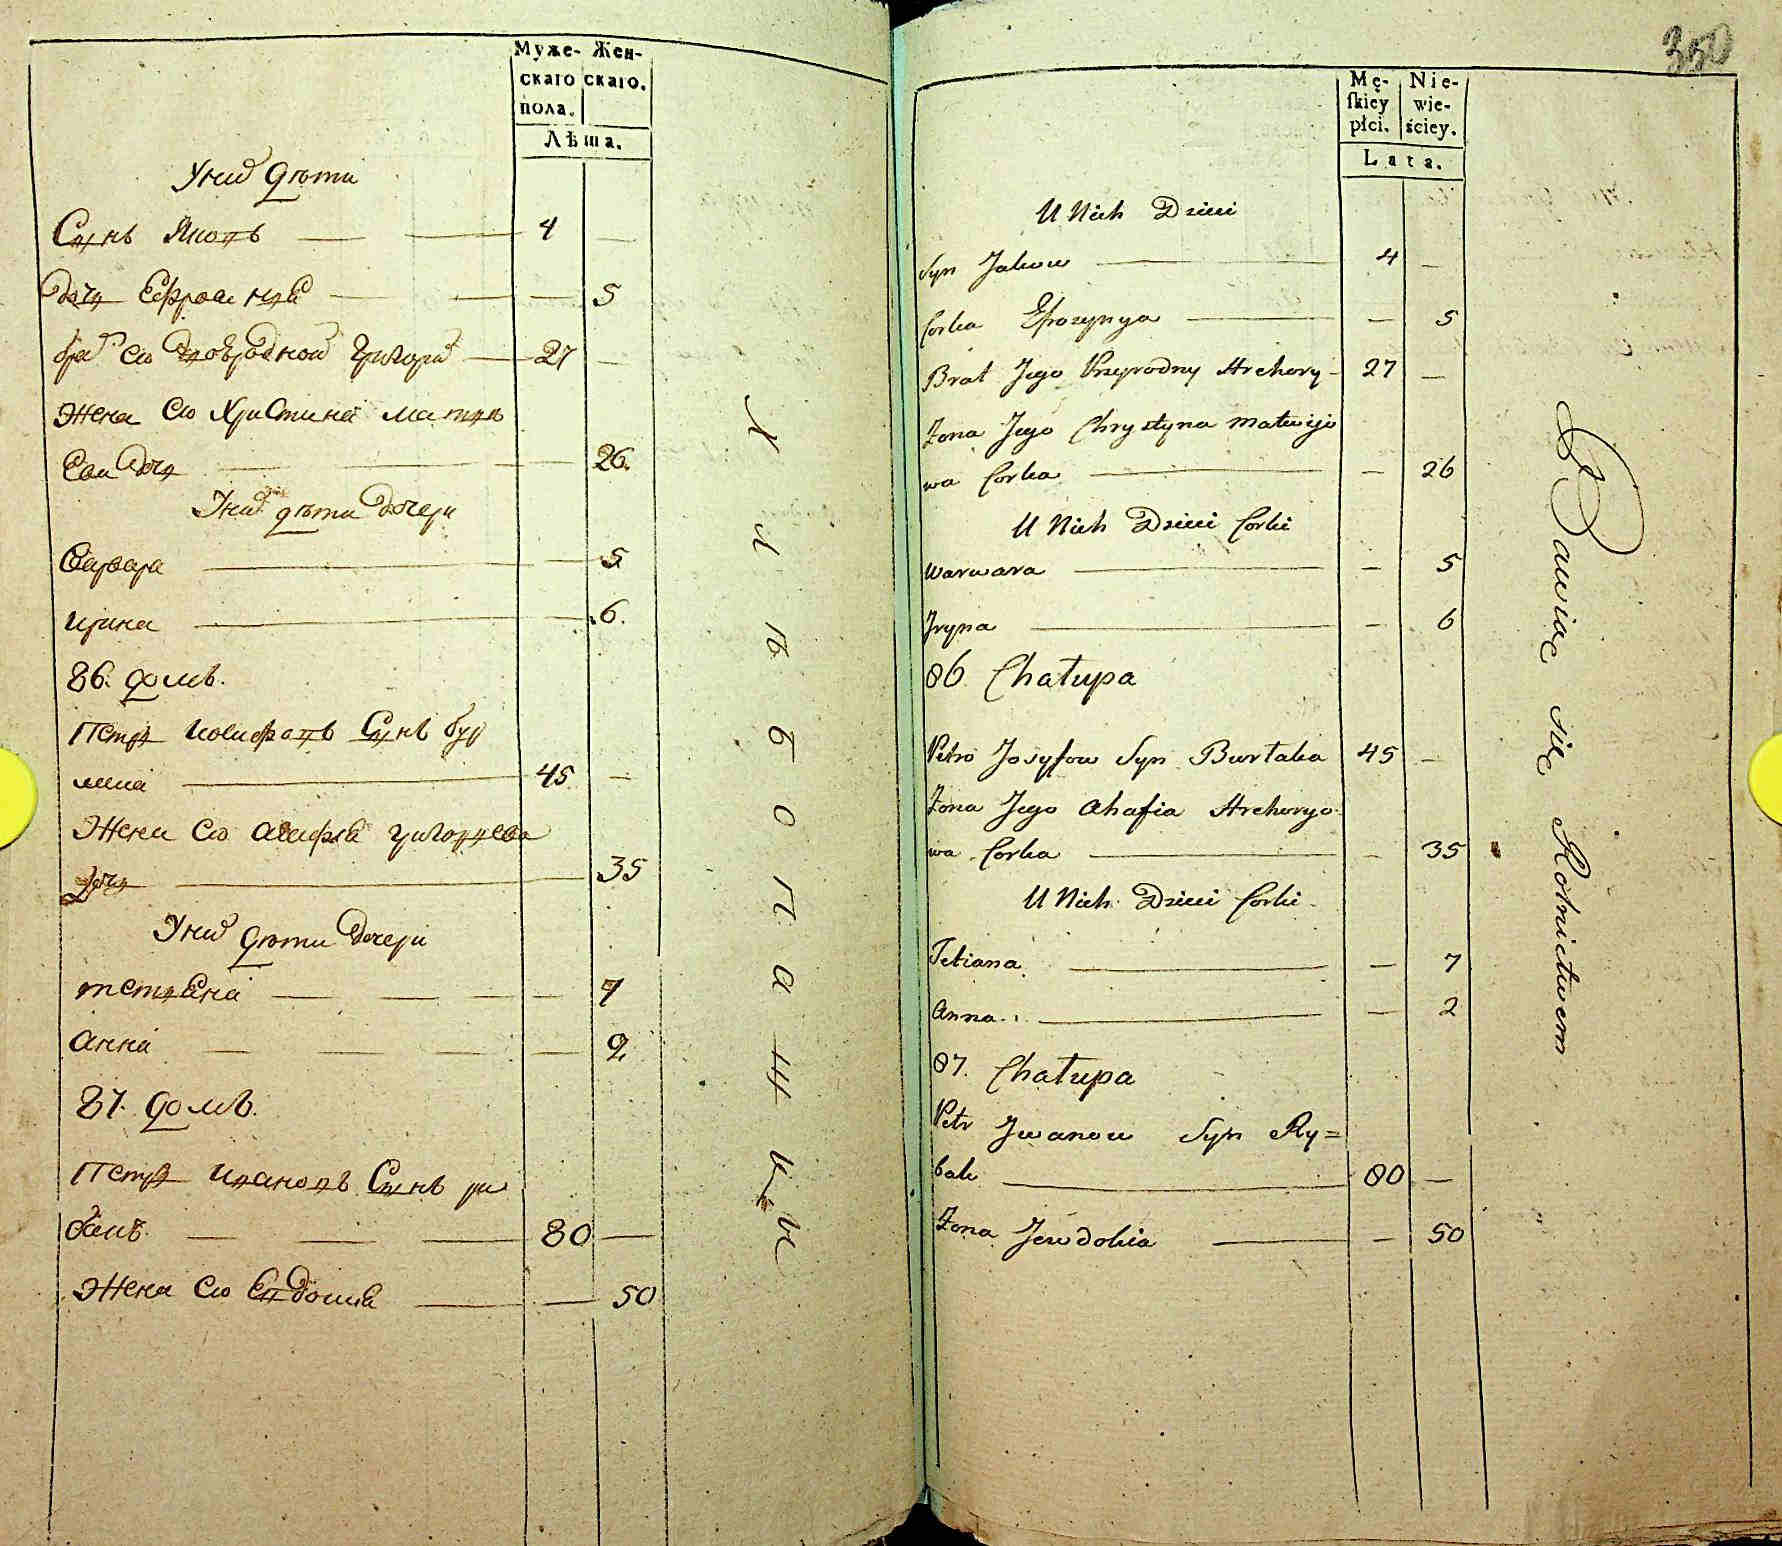 Муже- Жен-
скаго скаго.
пола.
Лѣта.
У них дѣти
Сынъ Яковъ 4 —
дочь Ефросиния — 5
бра его двоюродной Григорий 27 —
Жена его Христина Матвѣ
ева дочь — 26.
У них дѣти дочери
Варвара — 5
Ирина — 6.
86. домъ.
Петръ Иосифовъ Сынъ бур
45 —
Жена его Агафия Григорьева
дочь — 35
У них дѣти дочери
тетяна — 7
Анна — 2
87. домъ.
Петръ Ивановъ Сынъ ри
бакъ. 80 —
Жена его Евдокия — 50
Хлѣбопашцы
350
Mę- Nie-
skiey wie-
płci. ściey.
Lata.
U Nich Dzieci
Syn Jakow 4 —
Corka Efrozynya — 5
Brat Jego Przyrodny Hrehory 27 —
Zona Jego Chrystyna Matwijo
wa Corka — 26
U Nich Dzieci Corki
Warwara — 5
Jryna — 6
86 Chałupa
Petro Josyfow Syn Burtaka 45 —
Zona Jego Ahafia Hrehoryo
wa Corka — 35
U Nich Dzieci Corki
Tetiana — 7
Anna — 2
87. Chałupa
Petr Jwanow Syn Ry=
bak 80 —
Zona Jewdokia — 50
Bawiąc się Rolnictwem